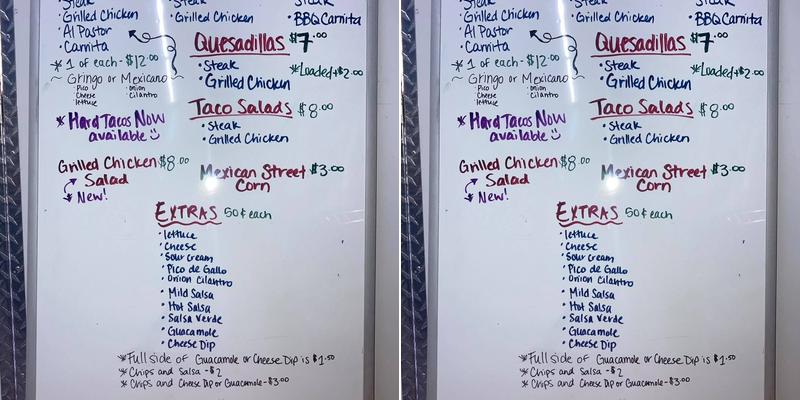 Steak
Steak
Steak
• Grilled Chicken
• Grilled Chicken
• BBQ Carnita
• Al Pastor
• Carnita
Quesadillas $7.00
* 1 of each - $12.00
• Steak
* Loaded + $2.00
~ Gringo or Mexicano
• Grilled Chicken
• Pico • Onion
• Cheese • Cilantro
• lettuce
Taco Salads $8.00
* Hard Tacos Now
available
• Steak
• Grilled Chicken
Grilled Chicken $8.00
Salad
* New!
Mexican Street $3.00
Corn
Extras 50¢ each
• lettuce
• Cheese
• Sour Cream
• Pico de Gallo
• Onion Cilantro
• Mild Salsa
• Hot Salsa
• Salsa Verde
• Guacamole
• Cheese Dip
* Full side of Guacamole or Cheese Dip is $1.50
* Chips and Salsa - $2
* Chips and Cheese Dip or Guacamole - $3.00
Steak
Steak
Steak
• Grilled Chicken
• Grilled Chicken
• BBQ Carnita
• Al Pastor
• Carnita
Quesadillas $7.00
* 1 of each - $12.00
• Steak
* Loaded + $2.00
~ Gringo or Mexicano
• Grilled Chicken
• Pico • Onion
• Cheese • Cilantro
• lettuce
Taco Salads $8.00
* Hard Tacos Now
available
• Steak
• Grilled Chicken
Grilled Chicken $8.00
Salad
* New!
Mexican Street $3.00
Corn
Extras 50¢ each
• lettuce
• Cheese
• Sour Cream
• Pico de Gallo
• Onion Cilantro
• Mild Salsa
• Hot Salsa
• Salsa Verde
• Guacamole
• Cheese Dip
* Full side of Guacamole or Cheese Dip is $1.50
* Chips and Salsa - $2
* Chips and Cheese Dip or Guacamole - $3.00